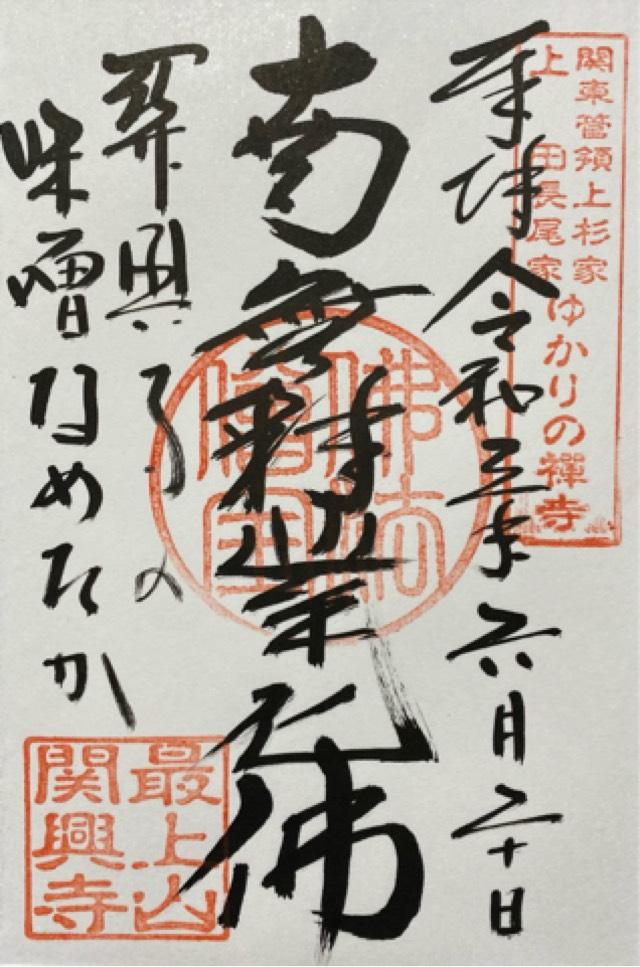 関東管領上杉家
上田長尾家
ゆかりの禅寺
奉拝 令和三年 六月二十日
南無釈迦牟尼佛
佛法僧宝
関興寺の
味噌なめたか
最上山
関興寺